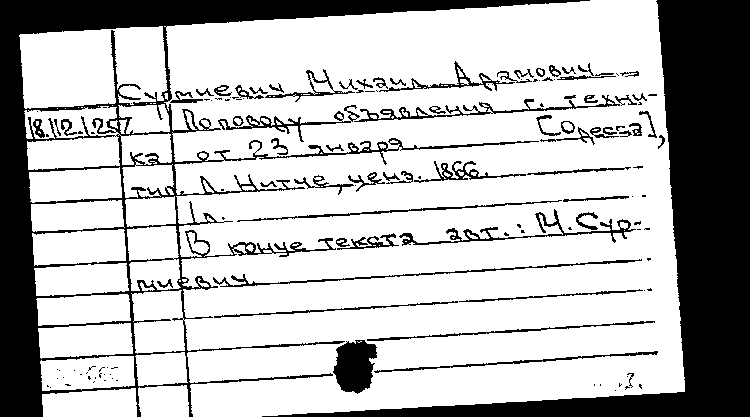 Сурмиевич, Михаил Адамович
18.112.1.257 По поводу объявления г. техни-
ка от 23 января. [Одесса],
тип. Л. Нитче, ценз. 1866.
1 л.
В конце текста авт.: М. Сур-
миевич.